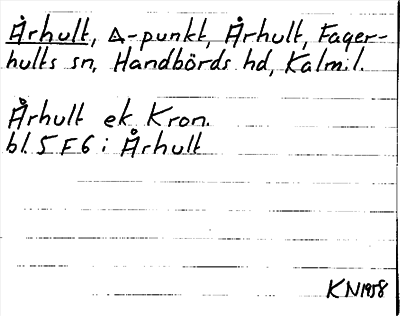 Århult, ∆-punkt, Århult, Fager-
hults sn, Handbörds hd, Kalm. l.
Århult ek. Kron.
bl. 5 F 6 i Århult
KN1958